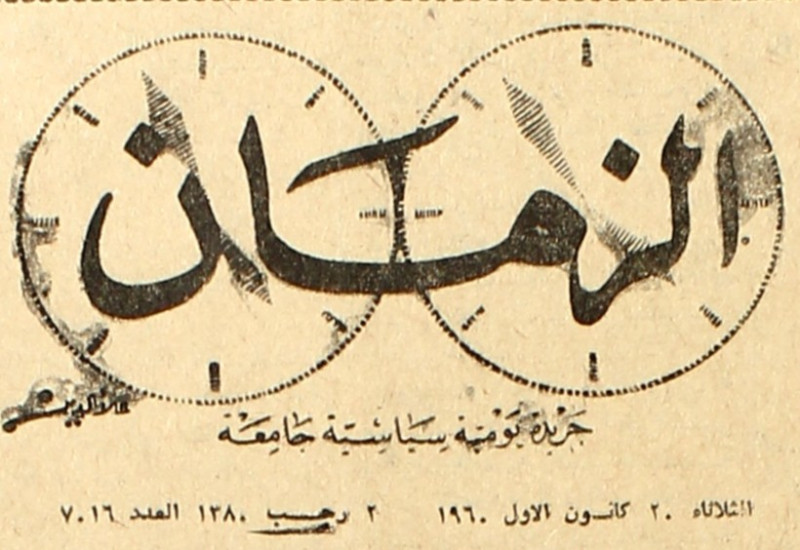 الزمان
جَريدة يَوميّة سيَاسيّة جَامعَة
الثلاثاء ٢٠ كانون الاول ١٩٦٠ ٢ رجب ١٣٨٠ العدد ٧٠١٦